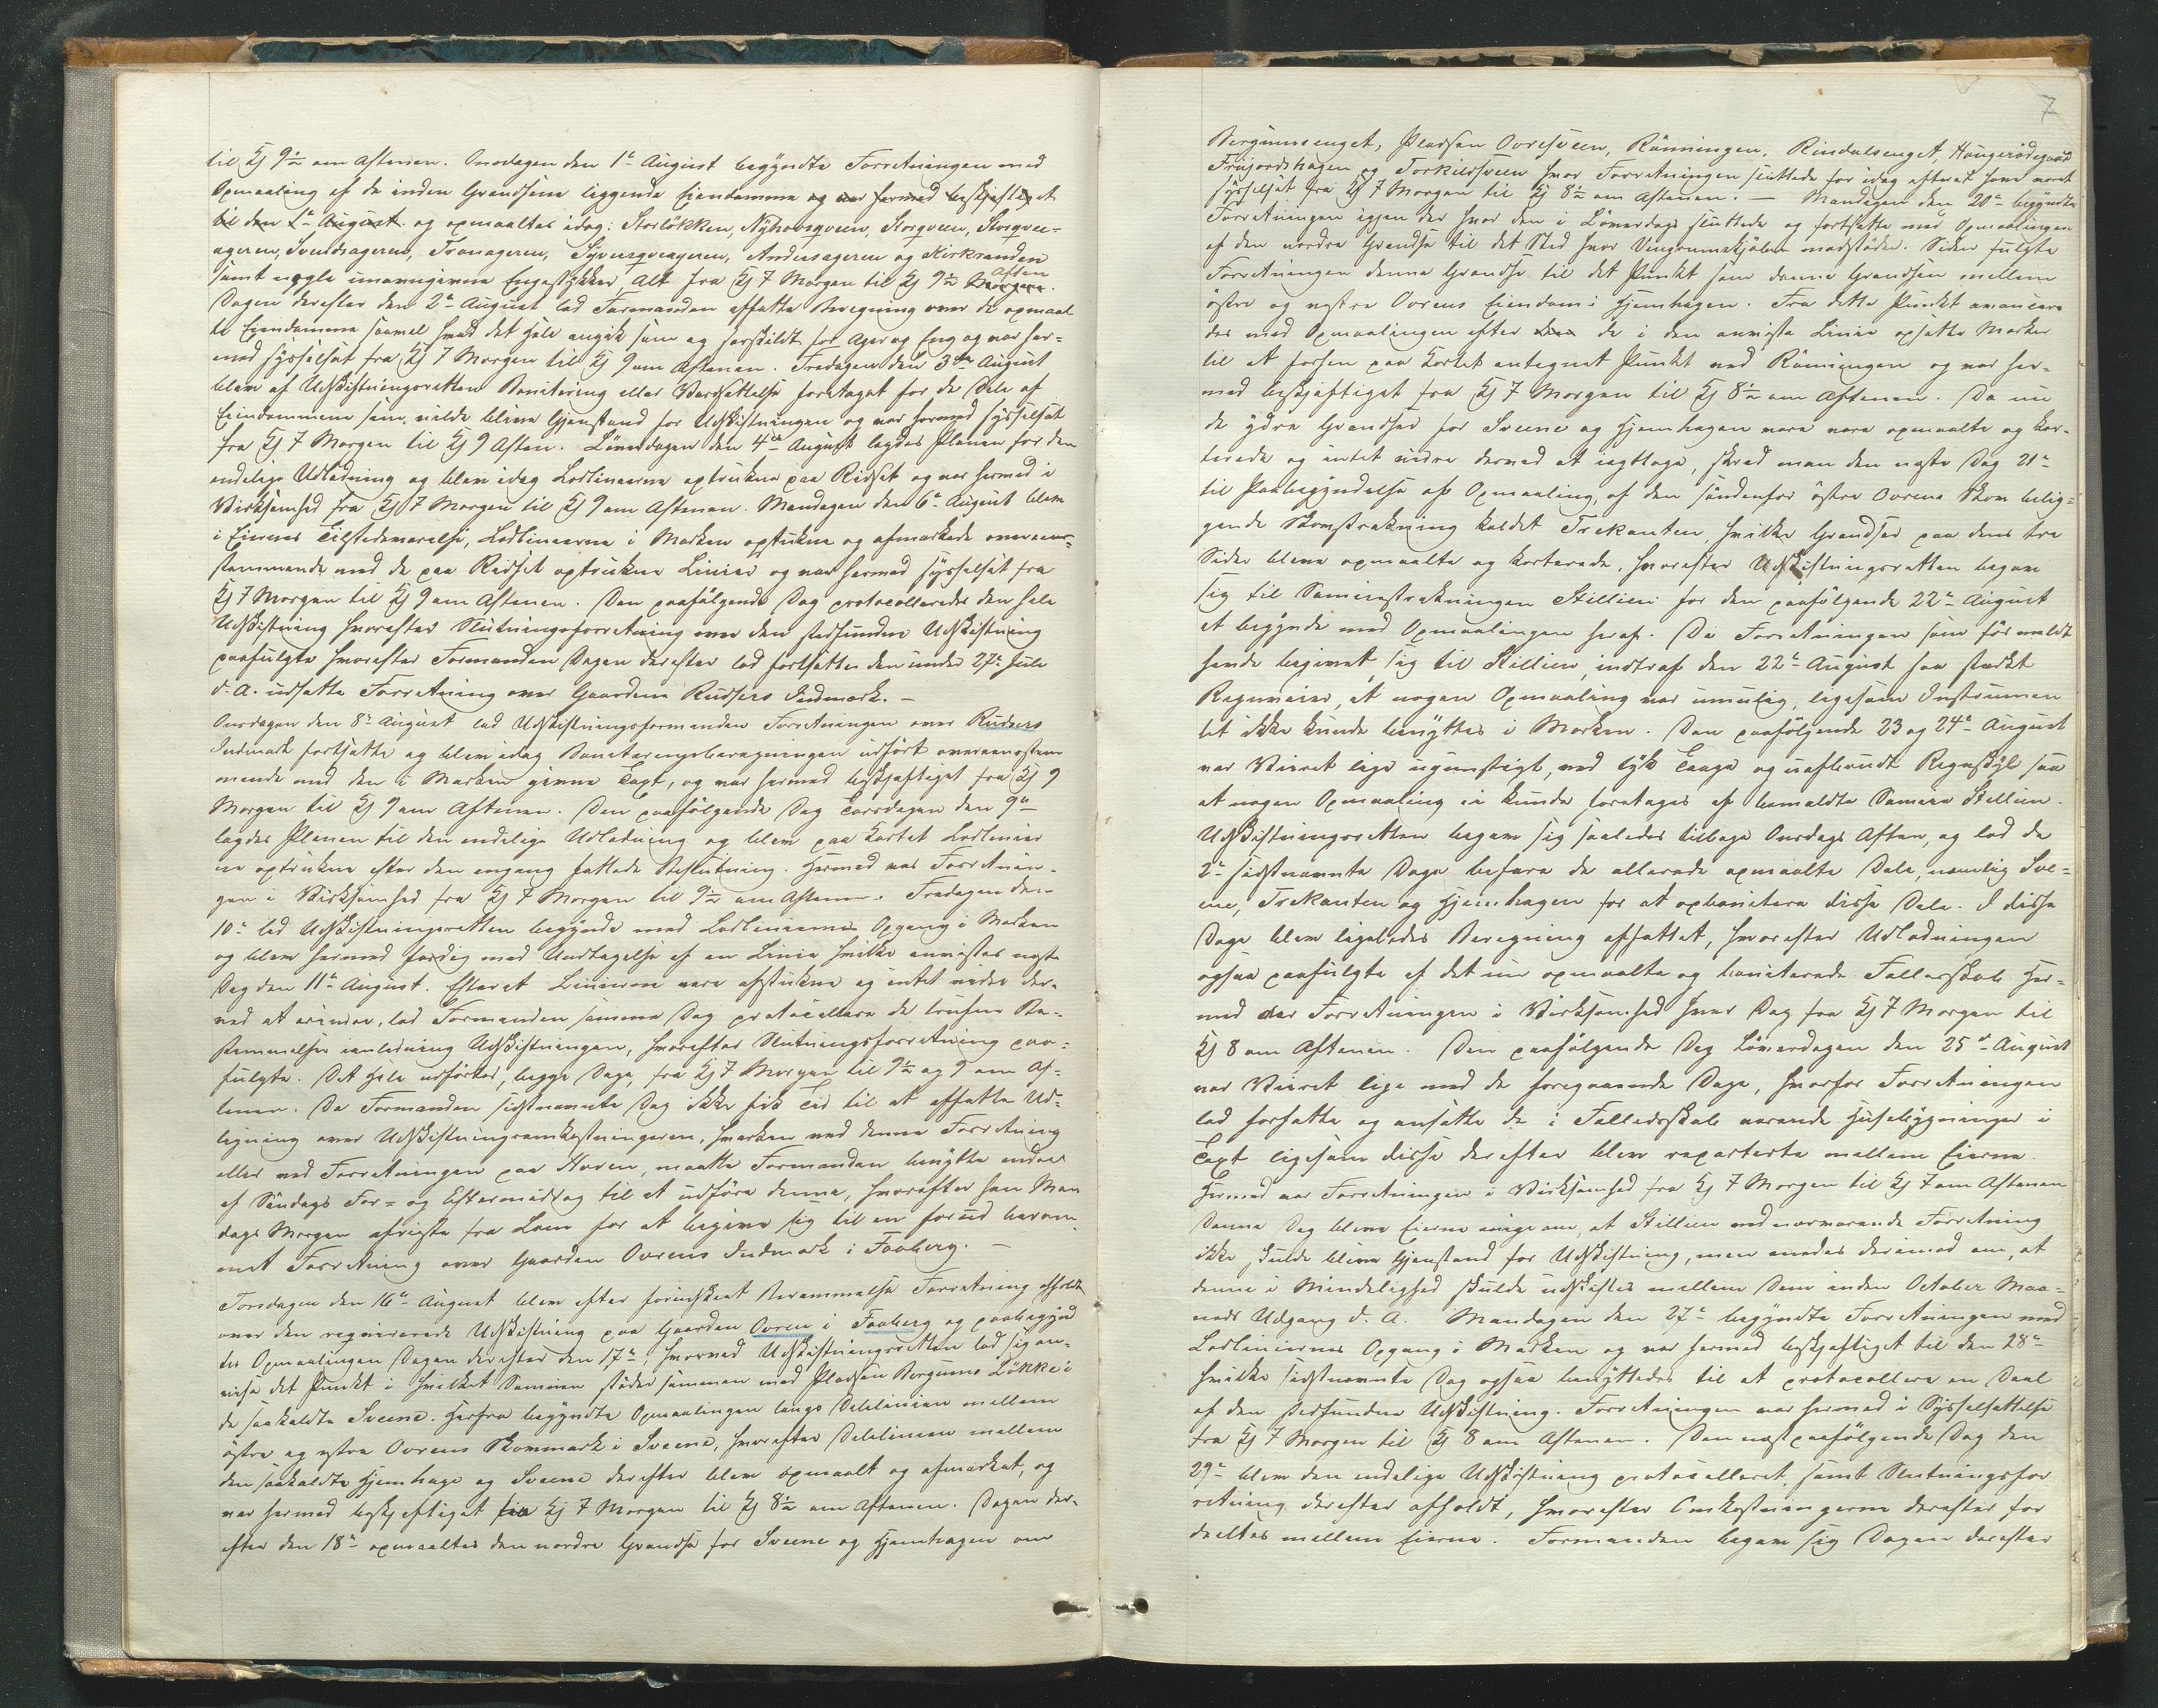 til Kl 9½ om Aftenen. Onsdagen den 1te August begyndte Forretningen med
Opmaaling af de inden Grendsene liggende Eiendomme og var hermed beskjæftiget
til den 1te August og opmaaltes idag: Storløkken, Nyhovsqveen, Storqveen, Storqvee-
ageren, Svendsageren, Tronageren, Syversqveageren, Andersageren og Kirkeranden
samt nogle unavngivne Engestykker, Alt fra Kl 7 Morgen til Kl 9½ Morgen Aften.
Dagen derefter den 2de August lod Formanden affatte Beregning over de opmaal
te Eiendomme saavel hvad det Hele angik som og særskildt for Ager og Eng og var her-
med sysselsat fra Kl 7 Morgen til Kl 9 om Aftenen. Fredagen den 3die August
blev af Udskiftningsretten Bonitering eller Værdsættelse foretaget for de Dele af
Eiendommene som vilde blive Gjenstand for Udskiftningen og var hermed sysselsat
fra Kl 7 Morgen til Kl 9 Aften. Løverdagen den 4de August lagdes Planen for den
endelige Udlodning og blev idag Lodlinierne optrukne paa Ridset og var hermed i
Virksomhed fra Kl 7 Morgen til Kl 9 om Aftenen. Mandagen den 6te August blev
i Eiernes Tilstedeværelse, Lodlinierne i Marken opstukne og afmærkede overeens-
stemmende med de paa Ridset optrukne Linier og var hermed sysselsat fra
Kl 7 Morgen til Kl 9 om Aftenen. Den paafølgende Dag protocolleredes den hele
Udskiftning hvorefter Slutningsforretning over den stedfundne Udskiftning
paafulgte hvorefter Formanden Dagen derefter lod fortsætte den under 27de Juli
d. A. udsatte Forretning over Gaardene Rudsers Indmark. –
Onsdagen den 8de August lod Udskiftningsformanden Forretningen over Rudsers
Indmark fortsætte og blev idag Boniteringsberegningen udført overeensstem
mende med den i Marken givne Taxt, og var hermed beskjæftiget fra Kl 9
Morgen til Kl 9 om Aftenen. Den paafølgende Dag Torsdagen den 9de
lagdes Planen til den endelige Udlodning og blev paa Kartet Lodlinier
ne optrukne efter den engang fattede Beslutning. Hermed var Forretnin-
gen i Virksomhed fra Kl 7 Morgen til 9½ om Aftenen. Fredagen den
10de lod Udskiftningsretten begynde med Lodliniernes Opgang i Marken
og blev hermed færdig med Undtagelse af en Linie hvilke anvistes næste
Dag den 11te August. Efterat Linierne vare afstukne og intet videre der-
ved at erindre, lod Formanden samme Dag protocollere de trufne Be-
stemmelser ianledning Udskiftningen, hvorefter Slutningsforretning paa-
fulgte. Det Hele udførtes, begge Dage, fra Kl 7 Morgen til 9½ og 9 om Af-
tenen. Da Formanden sidstnævnte Dag ikke fik Tid til at affatte Ud-
ligning over Udskiftningsomkostningerne, hverken ved denne Forretning
eller ved Forretningen paa Hoven, maatte Formanden benytte endeel
af Søndags For- og Eftermiddag til at udføre denne, hvorefter han Man
dags Morgen afreiste fra Loen for at begive sig til en forud beram-
met Forretning over Gaarden Ovrens Indmark i Faaberg. –
Torsdagen den 16de August blev efter forudskeet Berammelse Forretning afholdt
over den reqvirerede Udskiftning paa Gaarden Ovren i Faaberg og paabegynd
tes Opmaalingen Dagen derefter den 17de, hvorved Udskiftningsretten lod sig an-
vise det Punkt i hvilket Sameien støder sammen med Pladsen Bergums Løkke i
de saakaldte Sveene. Herfra begyndte Opmaalingen langs Delelinien mellem
østre og vestre Ovrens Skovmark i Sveene, hvorefter Delelinien mellem
den saakaldte Hjemhage og Sveene derefter blev opmaalt og afmærket, og
var hermed beskjæftiget fra Kl 7 Morgen til Kl 8½ om Aftenen. Dagen der-
efter den 18de opmaaltes den nordre Grendse for Sveene og Hjemhagen om
7
Bergumsenget, Pladsen Ovresveen, Rønningen, Rindalsenget, Haugerødegaard
Frugjordshagen og Torkildsveen hvor Forretningen sluttede for idag efterat have været
sysselsat fra Kl 7 Morgen til Kl 8½ om Aftenen. – Mandagen den 20de begyndte
Forretningen igjen der hvor den i Løverdags sluttede og fortsatte med Opmaalingen
af den nordre Grendse til det Sted hvor Vingromskjølen modstøder. Siden fulgte
Forretningen denne Grendse til det Punkt som danne Grendsen mellem
østre og vestre Ovrens Eiendom i Hjemhagen. Fra dette Punkt avancere
des med Opmaalingen efter den de i den anviste Linie opsatte Mærker
til et forhen paa Kartet antegnet Punkt ved Rønningen og var her-
med beskjæftiget fra Kl 7 Morgen til Kl 8½ om Aftenen. Da nu
de ydre Grendser for Sveene og Hjemhagen vare opmaalte og kar-
terede og intet videre dermed at iagttage, skred man den næste Dag 21de
til Paabegyndelse af Opmaaling, af den søndenfor østre Ovrens Skov belig-
gende Skovstrækning kaldet Trekanten, hvilke Grendser paa dens tre
Sider bleve opmaalte og karterede, hvorefter Udskiftningsretten begav
sig til Sameiestrækningen Stillien for den paafølgende 22de August
at begynde med Opmaalingen heraf. Da Forretningen som før meldt
havde begivet sig til Stillien, indtraf den 22de August saa stærkt
Regnveir, at nogen Opmaaling var umulig, ligesom Instrumen
tet ikke kunde benyttes i Marken. Den paafølgende 23 og 24de August
var Veiret lige ugunstigt, med tyk Taage og uafbrudt Regnskyl saa
at nogen Opmaaling ei kunde foretages af bemeldte Sameie Stillien.
Udskiftningsretten begav sig saaledes tilbage Onsdags Aften, og lod de
2de sidstnævnte Dage befare de allerede opmaalte Dele, nemlig Sve-
ene, Trekanten og Hjemhagen for at opbonitere disse Dele. I disse
Dage blev ligeledes Beregning affattet, hvorefter Udlodningen
ogsaa paafulgte af det nu opmaalte og boniterede Fællesskab. Her-
med var Forretningen i Virksomhed hver Dag fra Kl 7 Morgen til
Kl 8 om Aftenen. Den paafølgende Dag Løverdagen den 25de August
var Veiret lige med de foregaaende Dage, hvorfor Forretningen
lod forfatte og ansætte de i Fælledsskab værende Huusebygninger i
Taxt ligesom disse derefter blev reparterte mellem Eierne.
Hermed var Forretningen i Virksomhed fra Kl 7 Morgen til Kl 7 om Aftenen
Denne Dag bleve Eierne enige om, at Stillien ved nærværende Forretning
ikke skulde blive Gjenstand for Udskiftning, men enedes derimod om, at
denne i Mindelighed skulde udskiftes mellem dem inden October Maa-
neds Udgang d. A. Mandagen den 27de begyndte Forretningen med
Lodliniernes Opgang i Marken og var hermed beskjæftiget til den 28de
hvilke sidstnævnte Dag ogsaa benyttedes til at protocollere en Deel
af den stedfundne Udskiftning. Forretningen var hermed i Sysselsættelse
fra Kl 7 Morgen til Kl 8 om Aftenen. Den næstpaafølgende Dag den
29de blev den endelige Udskiftning protocolleret, samt Slutningsfor
retning derefter afholdt, hvorefter Omkostningerne derefter for
deeltes mellem Eierne. Formanden begav sig Dagen derefter